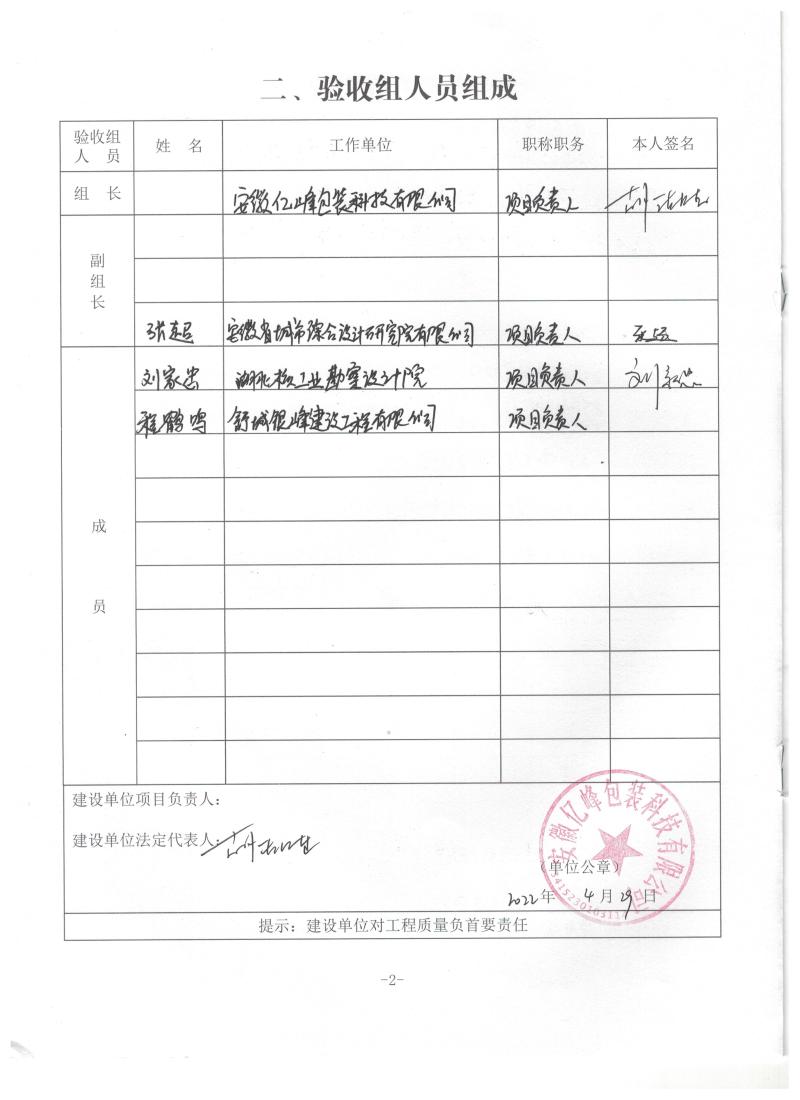 二、验收组人员组成
验收组人 员 姓 名 工作单位 职称职务 本人签名
组 长 安徽亿峰包装科技有限公司 项目负责人
副组长
张 安徽省城市综合设计研究院有限公司 项目负责人
刘家忠 湖北核工业勘察设计院 项目负责人 刘家忠
程鹤鸣 舒城银峰建设工程有限公司 项目负责人
成员
建设单位项目负责人：
建设单位法定代表人：
安徽亿峰包装科技有限公司
（单位公章）
2022年 4月29日
提示：建设单位对工程质量负首要责任
-2-